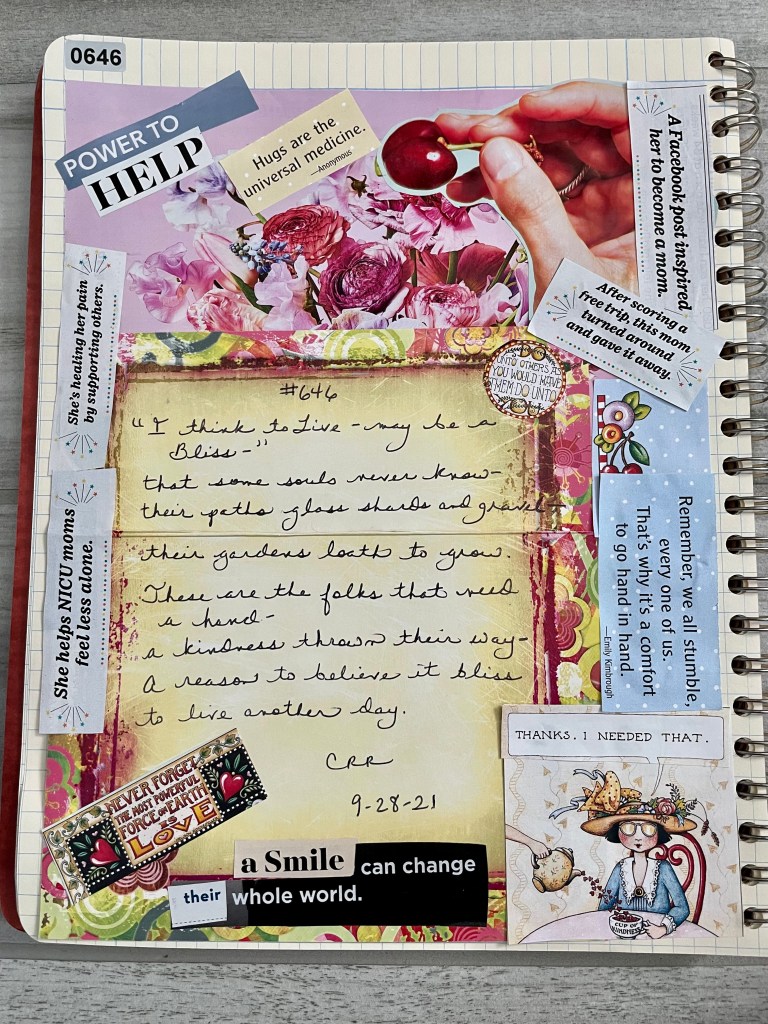 0646
POWER TO
HELP
Hugs are the
universal medicine.
—Anonymous
A Facebook post inspired
her to become a mom.
After scoring a
free trip, this mom
turned around
and gave it away.
She's healing her pain
by supporting others.
DO
UNTO OTHERS AS
YOU WOULD HAVE
THEM DO UNTO
#646
"I think to Live - may be a
Bliss - "
that some souls never know -
their paths glass shards and gravel -
their gardens loath to grow.
These are the folks that need
a hand -
a kindness thrown their way -
A reason to believe it bliss
to live another day.
CRR
9-28-21
She helps NICU moms
feel less alone.
Remember, we all stumble,
every one of us.
That's why it's a comfort
to go hand in hand.
—Emily Kimbrough
THANKS. I NEEDED THAT.
CUP OF
KINDNESS
NEVER FORGET
THE MOST POWERFUL
FORCE ON EARTH
IS
LOVE
a Smile can change
their whole world.